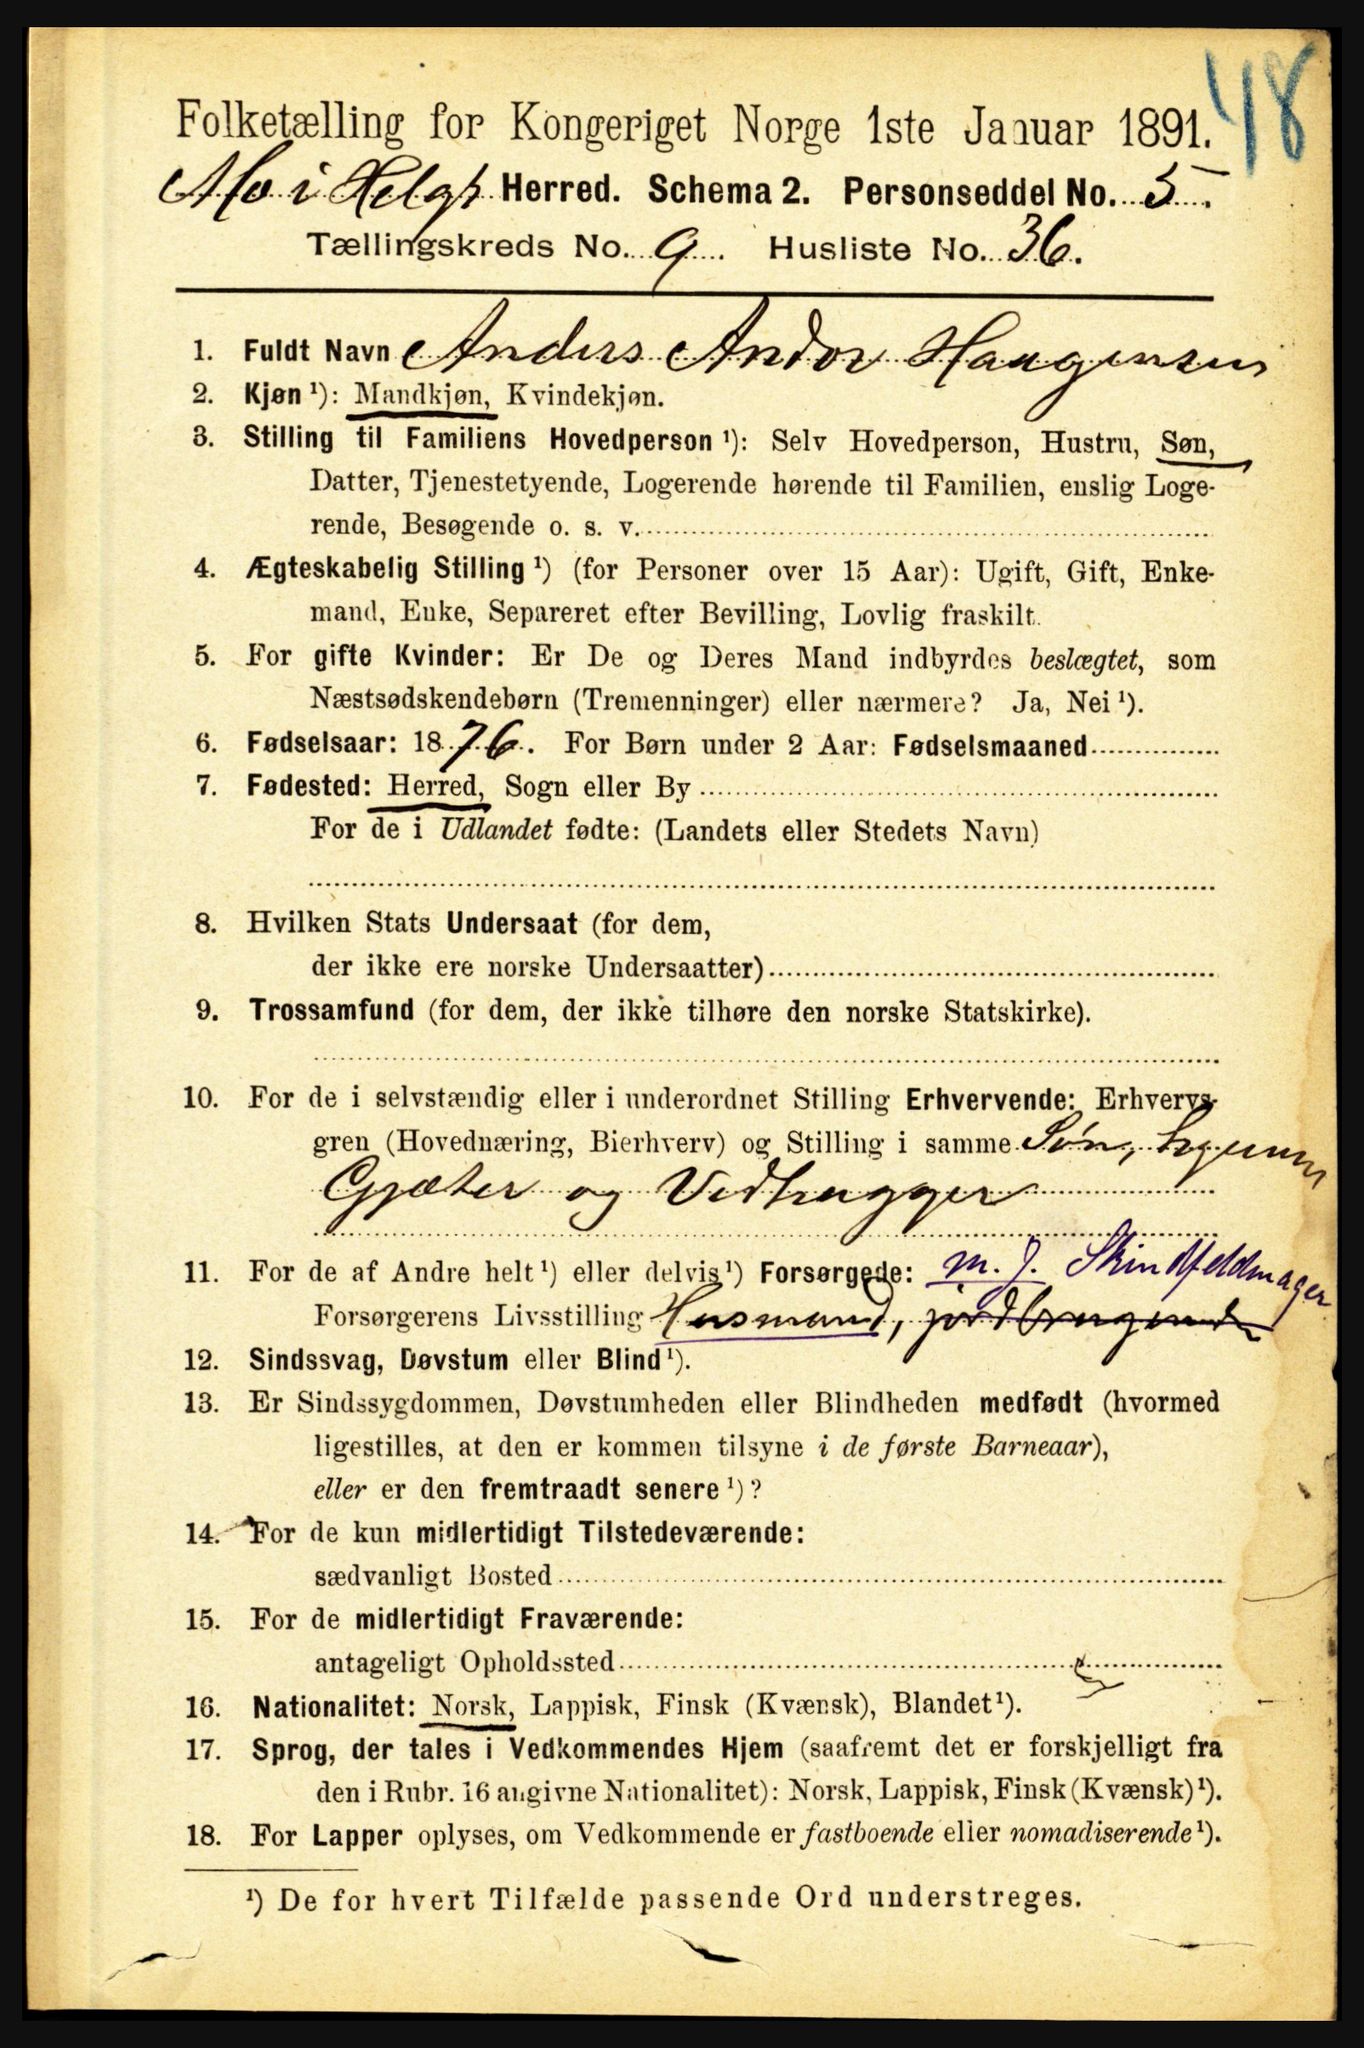 48
Folketælling for Kongeriget Norge 1ste Januar 1891.
Mo i Helgl. Herred. Schema 2. Personseddel No. 5.
Tællingskreds No. 9. Husliste No. 36.
1. Fuldt Navn Anders Andor Haagensen
2. Kjøn ¹): Mandkjøn, Kvindekjøn.
3. Stilling til Familiens Hovedperson ¹): Selv Hovedperson, Hustru, Søn,
Datter, Tjenestetyende, Logerende hørende til Familien, enslig Loge-
rende, Besøgende o. s. v.
4. Ægteskabelig Stilling ¹) (for Personer over 15 Aar): Ugift, Gift, Enke-
mand, Enke, Separeret efter Bevilling, Lovlig fraskilt.
5. For gifte Kvinder: Er De og Deres Mand indbyrdes beslægtet, som
Næstsødskendebørn (Tremenninger) eller nærmere? Ja, Nei ¹).
6. Fødselsaar: 1876. For Børn under 2 Aar: Fødselsmaaned
7. Fødested: Herred, Sogn eller By
For de i Udlandet fødte: (Landets eller Stedets Navn)
8. Hvilken Stats Undersaat (for dem,
der ikke ere norske Undersaatter)
9. Trossamfund (for dem, der ikke tilhøre den norske Statskirke).
10. For de i selvstændig eller i underordnet Stilling Erhvervende: Erhvervs-
gren (Hovednæring, Bierhverv) og Stilling i samme Søn,
Gjæter og Vedhugger
11. For de af Andre helt ¹) eller delvis ¹) Forsørgede: m. J. Skindfeldmager
Forsørgerens Livsstilling Husmand, jordbrugende
12. Sindssvag, Døvstum eller Blind ¹).
13. Er Sindssygdommen, Døvstumheden eller Blindheden medfødt (hvormed
ligestilles, at den er kommen tilsyne i de første Barneaar),
eller er den fremtraadt senere ¹)?
14. For de kun midlertidigt Tilstedeværende:
sædvanligt Bosted
15. For de midlertidigt Fraværende:
antageligt Opholdssted
16. Nationalitet: Norsk, Lappisk, Finsk (Kvænsk), Blandet ¹).
17. Sprog, der tales i Vedkommendes Hjem (saafremt det er forskjelligt fra
den i Rubr. 16 angivne Nationalitet): Norsk, Lappisk, Finsk (Kvænsk) ¹).
18. For Lapper oplyses, om Vedkommende er fastboende eller nomadiserende ¹).
¹) De for hvert Tilfælde passende Ord understreges.